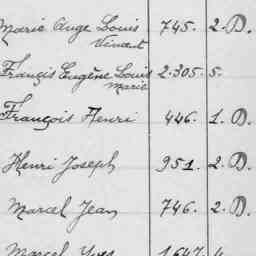 Marie Ange Louis 745. 2. D.
Vincent
Français Eugène Louis 2.305. 5.
Marie
François Henri 446. 1. D.
Henri Joseph 951. 2. D.
Marcel Jean 746. 2. D.
Marcel Yves 1647. 4.